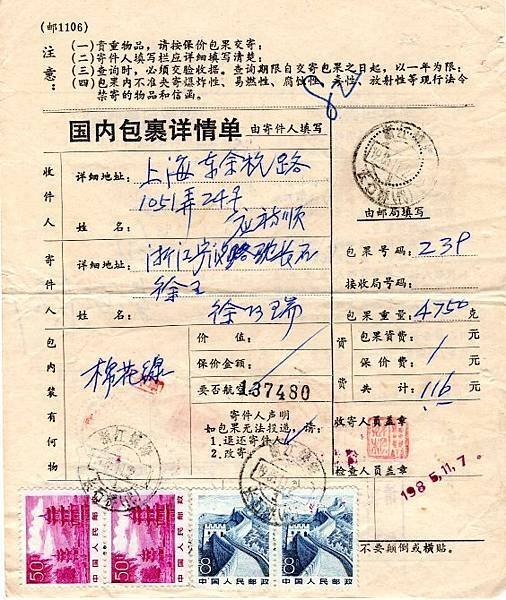 (邮1106)
注意:
(一)贵重物品,请按保价包裹交寄;
(二)寄件人填写栏应详细填写清楚;
(三)查询时,必须交验收据。查询期限自交寄包裹之日起,以一年为限;
(四)包裹内不准夹寄爆炸性、易燃性、腐蚀性、毒性、放射性等现行法令
禁寄的物品和信函。
国内包裹详情单 由寄件人填写
收件人
详细地址:上海东余杭路
1051弄24号
姓名:
由邮局填写
寄件人
详细地址:
姓名:
包裹号码:239
接收局号码:
包裹重量:4750克
包内装有何物
棉花线
价值:
保价金额:
要否航空:
137480
资费
包裹资费:元
保价费:1元
共计:116元
寄件人声明
如包裹无法投递,请:
1.退还寄件人
2.改寄
收寄人员盖章
检查人员盖章
1985.11.7.
50
中国人民邮政
50
中国人民邮政
8
中国人民邮政
8
中国人民邮政
不要颠倒或横贴。